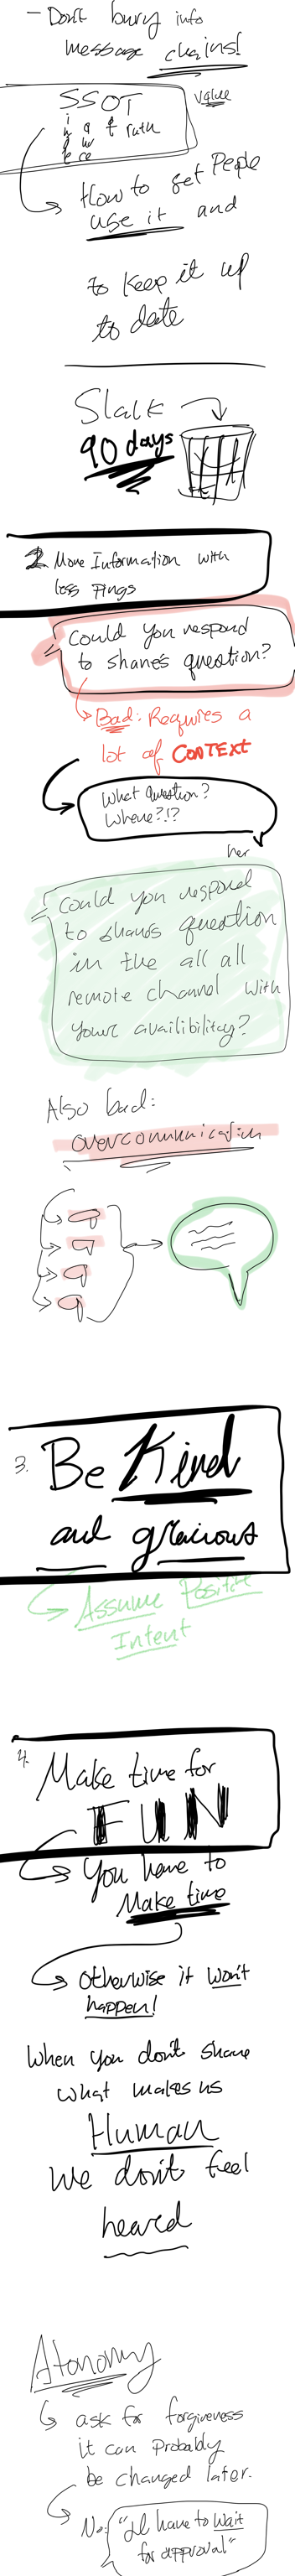 - Don't bury info
message chains!
SSOT value
ingle
ource
f
ruth
How to get People
use it and
to keep it up
to date
Slalk
90 days
2 More Information with
less Pings
Could you respond
to shane's question?
Bad: Requires a
lot of CONTEXT
What Question?
Where?!?
her
Could you respond
to shane's question
in the all all
remote channel with
your availibility?
Also bad:
overcommunication
3. Be Kind
and gracious
Assume Positive
Intent
4. Make time for
FUN
You have to
Make time
Otherwise it won't
happen!
When you don't share
what makes us
Human
We don't feel
heard
Atonomy
ask for forgiveness
it can Probably
be changed later.
No: "I'll have to wait
for approval"